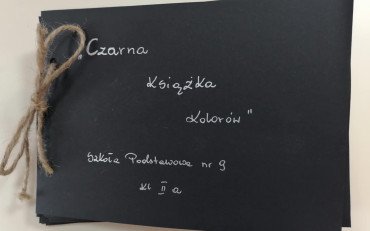 „Czarna
Książka
Kolorów"
Szkoła Podstawowa nr 9
kl II a